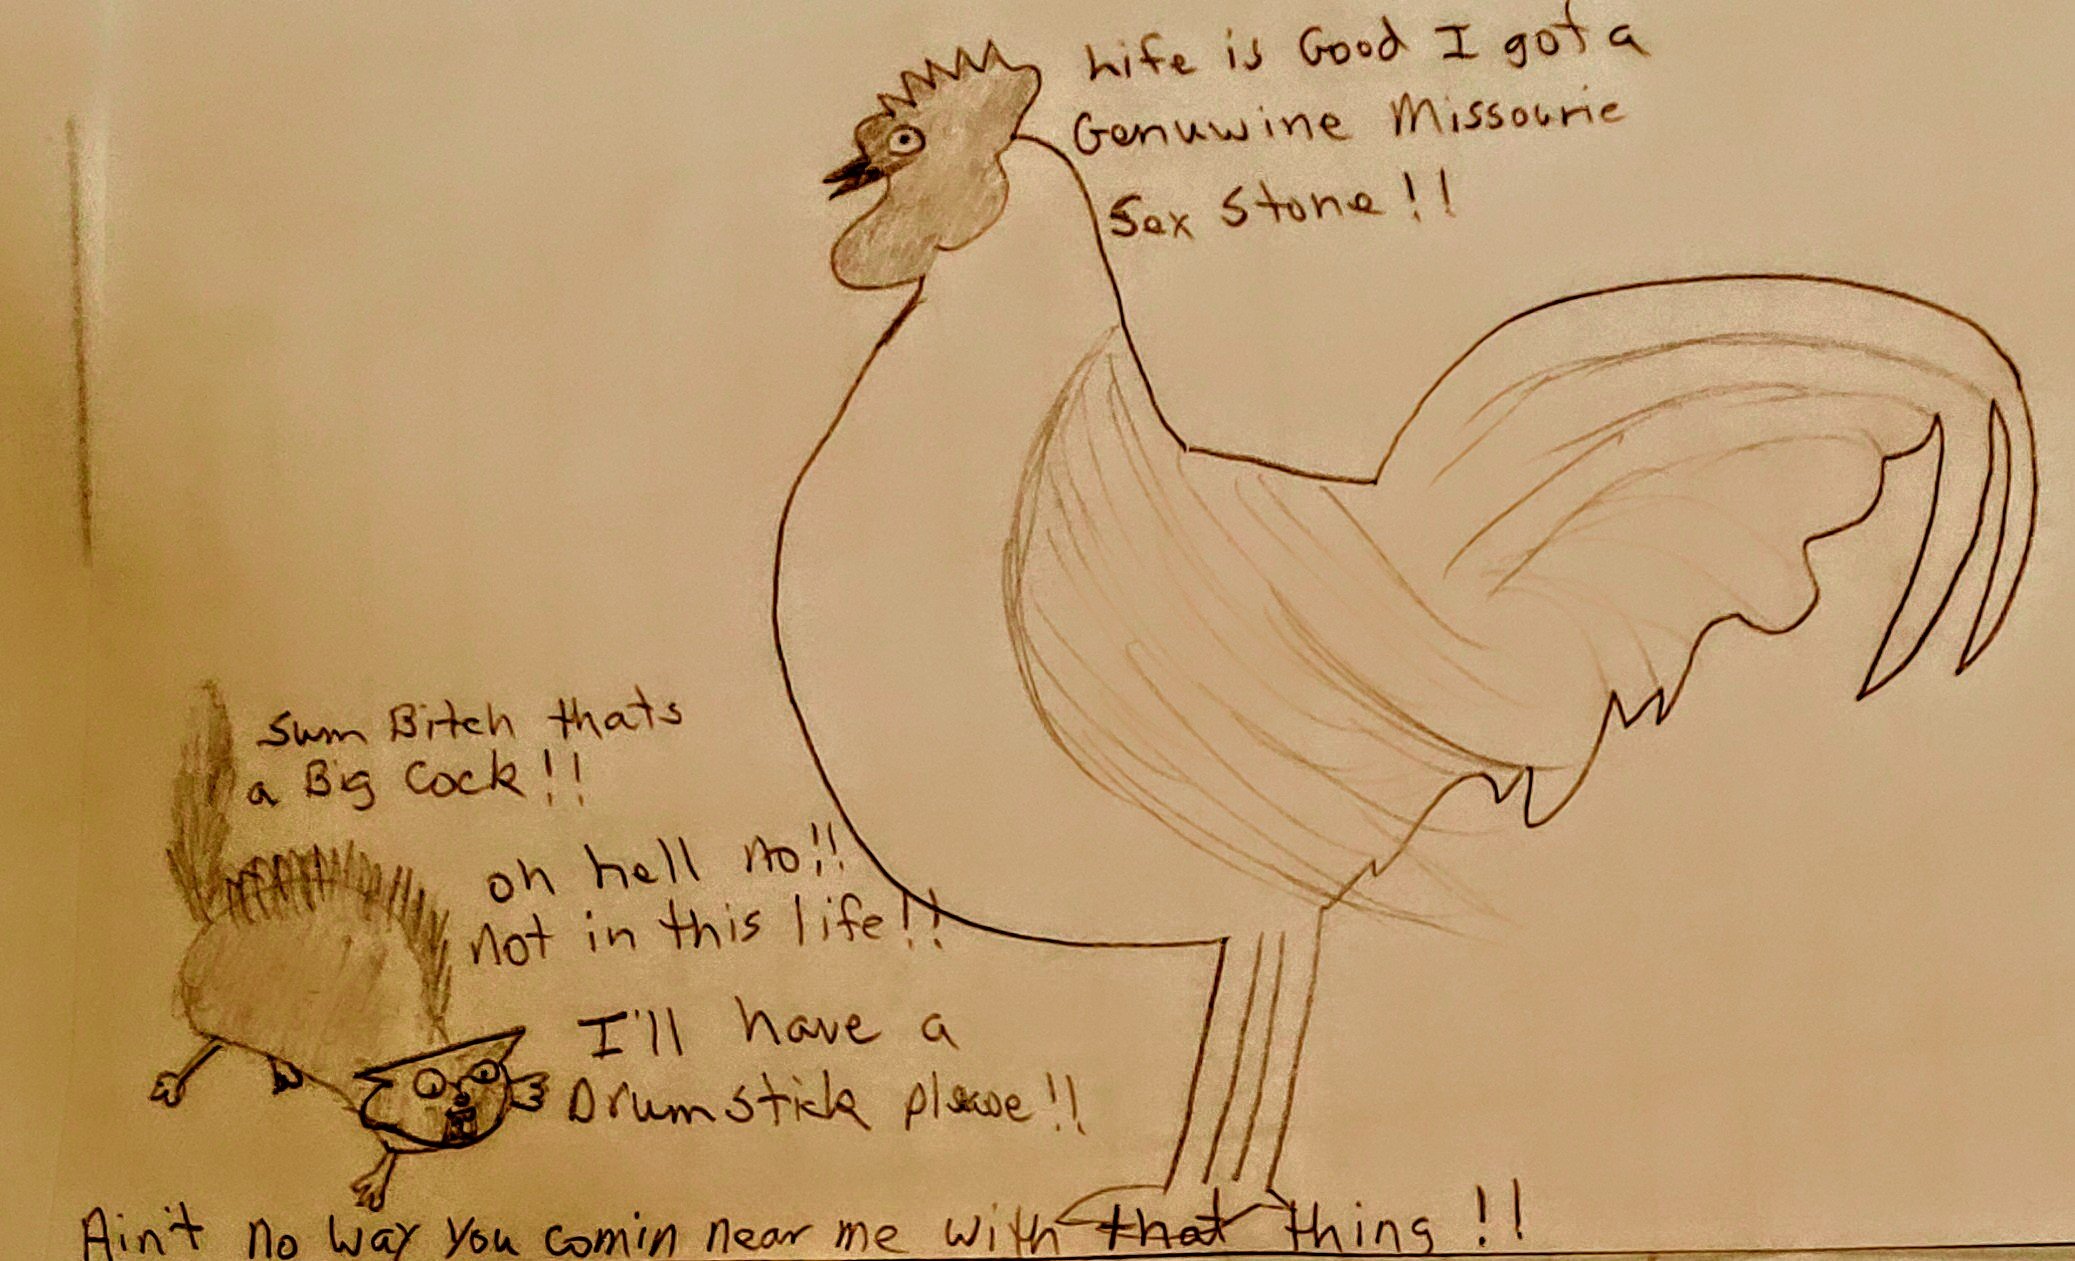 Life is Good I got a
Genuwine Missourie
Sex Stone!!
Sum Bitch thats
a Big Cock!!
oh hell no!!
not in this life!!
I'll have a
Drumstick please!!
Ain't no way you comin near me with that thing!!